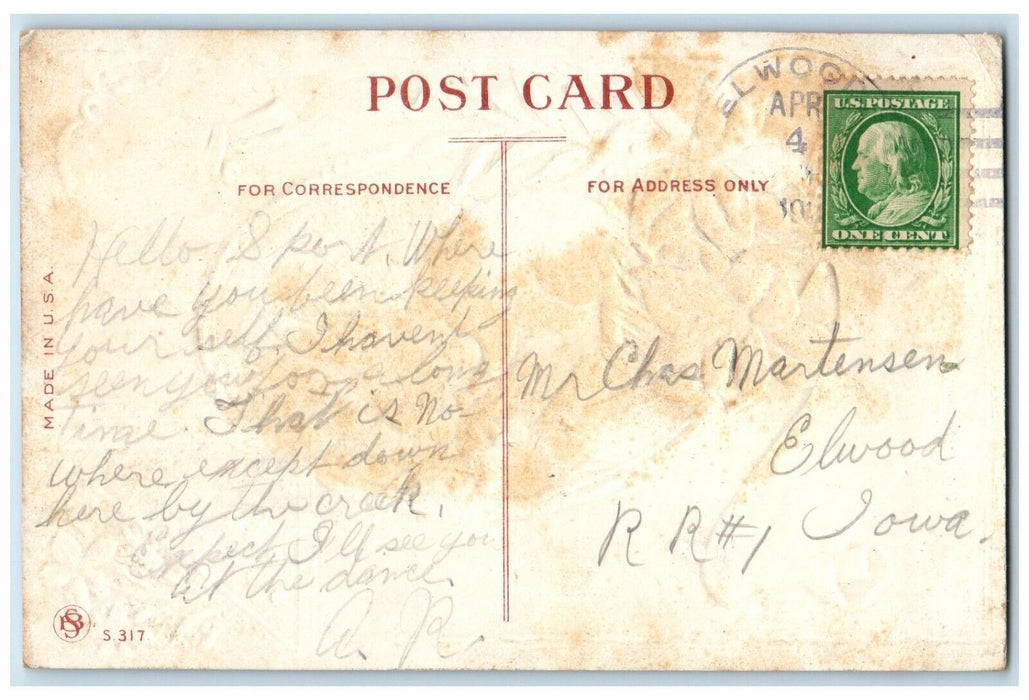 POST CARD
FOR CORRESPONDENCE
FOR ADDRESS ONLY
ELWOOD
APR
4
U.S. POSTAGE
ONE CENT
Hello Sport. Where
have you been keeping
your self. I havent
seen you for a long
time. That is No-
where except down
here by the creek.
Expect I'll see you
At the dance.
A. R.
Mr Chas Martensen
Elwood
R R #1 Iowa.
MADE IN U.S.A.
S.317